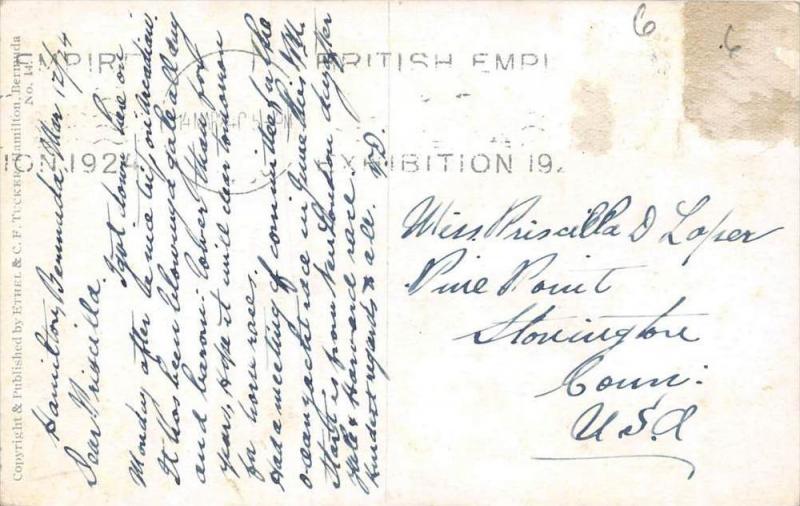 Copyright & Published by ETHEL & C. F. TUCKER, Hamilton, Bermuda
No. 14
Hamilton, Bermuda, Mar 12/24
Dear Priscilla
I got down here on
Monday after a nice trip on
It has been blowing a gale all day
and lower than for
year, Hope it will clear tomorrow
for horse race.
Had a meeting of committee for the
ocean yacht race in June this P.M.
starts from New London day after
Yale & Harvard race.
Kindest regards to all.
BRITISH EMPI
EXHIBITION 19
EMPIR
ION 1924
6
6
Miss Priscilla D Loper
Pine Point
Stonington
Conn:
USA